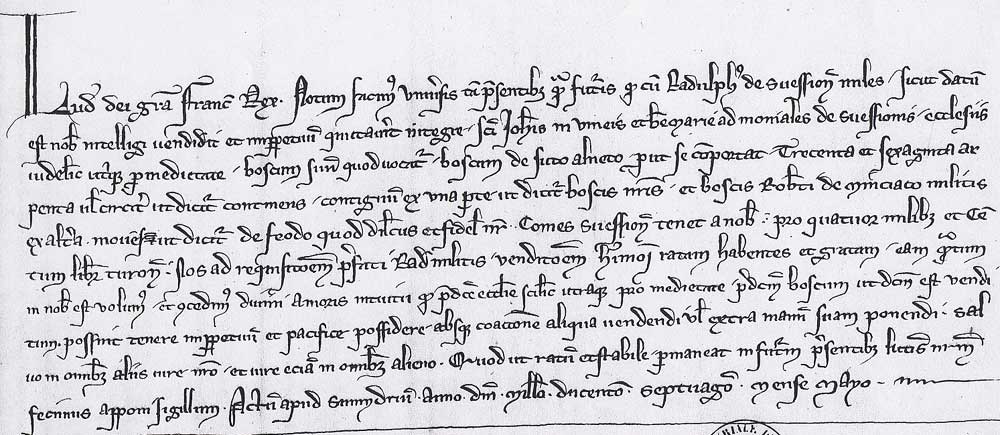 Lud' dei gra Franc' Rex. Notum facim' univ'sis tam p'sentib; q' futur' q' cu Radulph' de Suession' miles sicut datum
est nob' intelligi vendidit et imppetuu' quitaverit integre sci Joh'is in vineis et be marie ad moniales de Suessionis ecclesiis
videlic' utriq; p' medietate boscum suum quod vocatur boscum de suto alneto p'ut se comportat Trecenta et sexaginta ar
penta vl' circit' ut dicitur continens contiguu' ex una pte ut dicitur boscis nris et boscis Rob'ti de militis
ex alt'a. movens ut dicitur de feodo quod dilectus et fidel' nr'. Comes Suession' tenet a nob' : pro quatuor milib; et Cen
tum libr' turon'. Nos ad requisitoem p'fati Rad' militis venditoem hui'moi ratam habentes et gratam eam q'tum
in nob' est volum' et 9cedim' divini amoris intuitu q' p'dce ecclie scilic' utraq; pro medietate p'dcm boscum ut dcm est vendi
tum, possint tenere imppetuu' et pacifice possidere absq; coactione aliqua vendendi vl' extra manu' suam ponendi. Sal
vo in omib; aliis iure nro et iure ecia in omib; alieno. Quod ut ratu' et stabile p'maneat in futur' p'sentib; litt'is nr'm
fecimus apponi sigillum. Actu' apud Anno dni millo ducento septuago. mense Mayo.